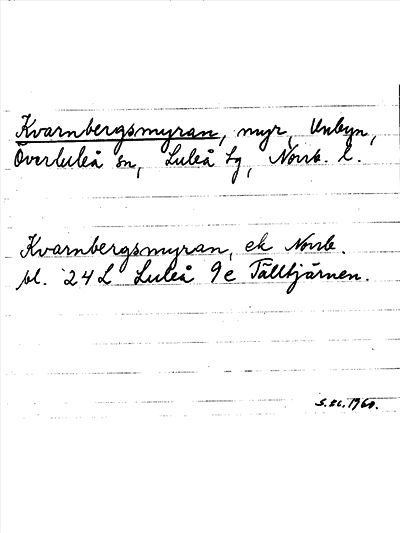 Kvarnbergsmyran, myr, Unbyn,
Överluleå sn, Luleå tg, Norrb. l.
Kvarnbergsmyran, ek Norrb.
bl. 24 L Luleå 9e Tälltjärnen.